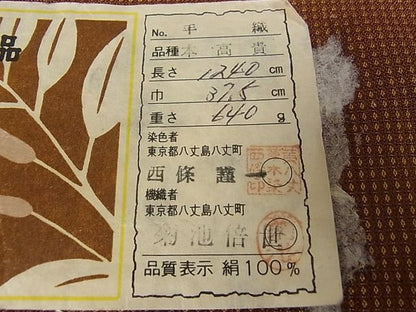 品
No. 手織
品種 本高貴
長さ 1240 cm
巾 37.5 cm
重さ 640 g
染色者
東京都八丈島八丈町
西條謹一
機織者
東京都八丈島八丈町
菊池倍世
品質表示 絹100%